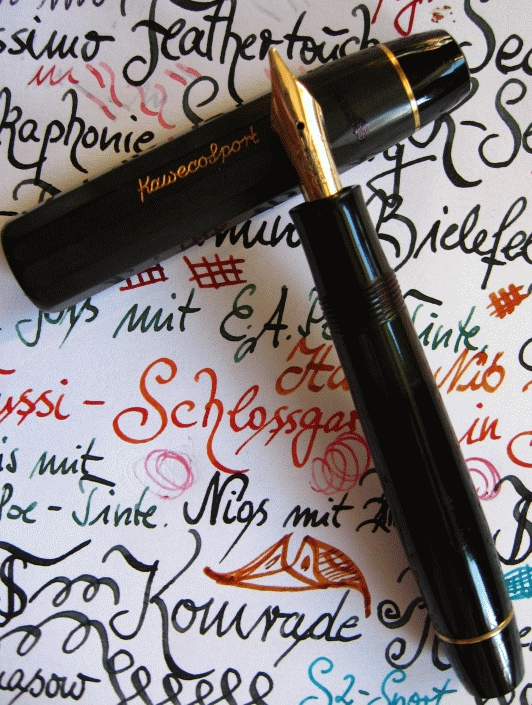 ssimo Feathertouch
kaphonie
Kaweco Sport
Bielefe
Joys mit E.A. Poe Tinte.
ussi - Schlossgar in
Nib
is mit
Poe - Tinte. Nigs mit
Komrade
masow
S2-Sport